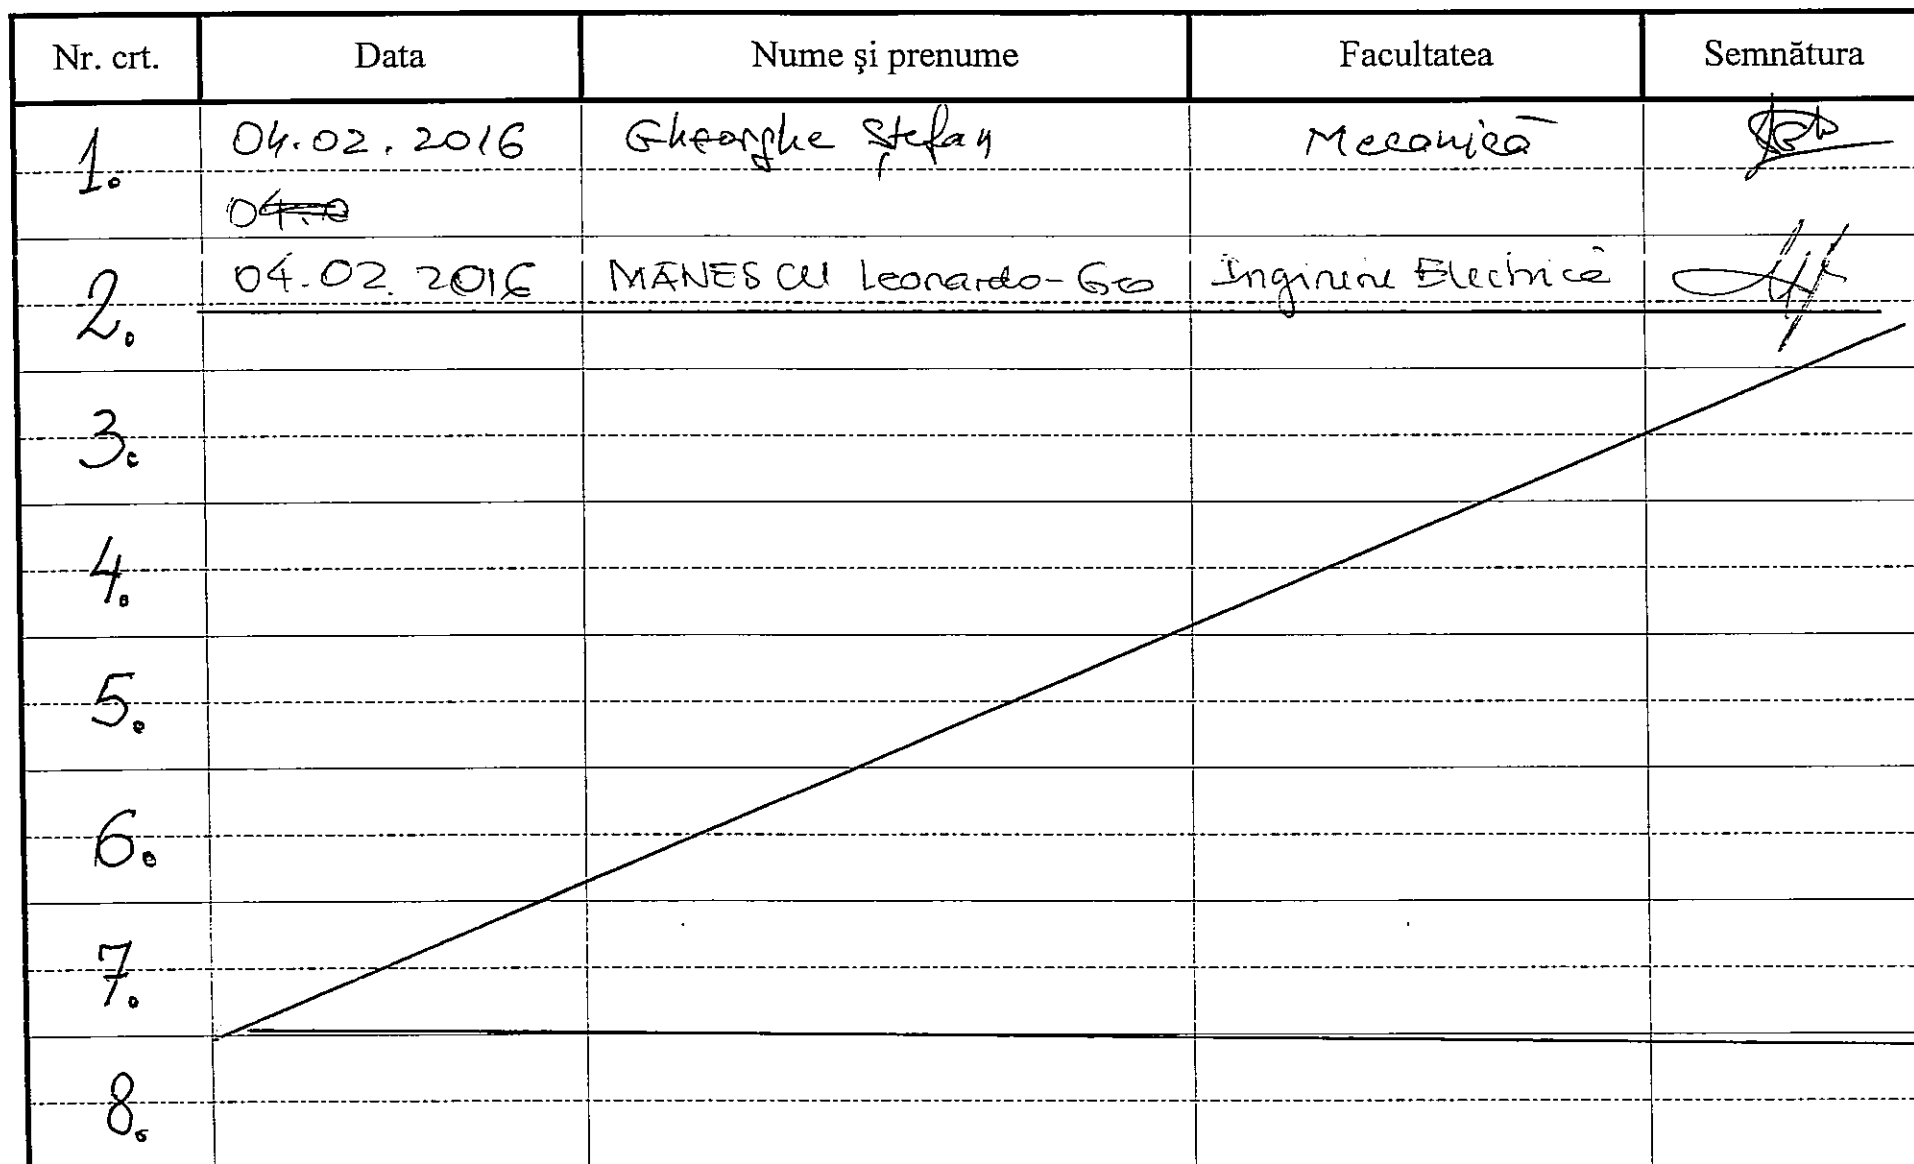 Nr. crt. Data Nume şi prenume Facultatea Semnătura
1. 04.02.2016 Gheorghe Ștefan Mecanică
04.0
2. 04.02.2016 MĂNESCU Leonardo-Geo Inginerie Electrică
3.
4.
5.
6.
7.
8.